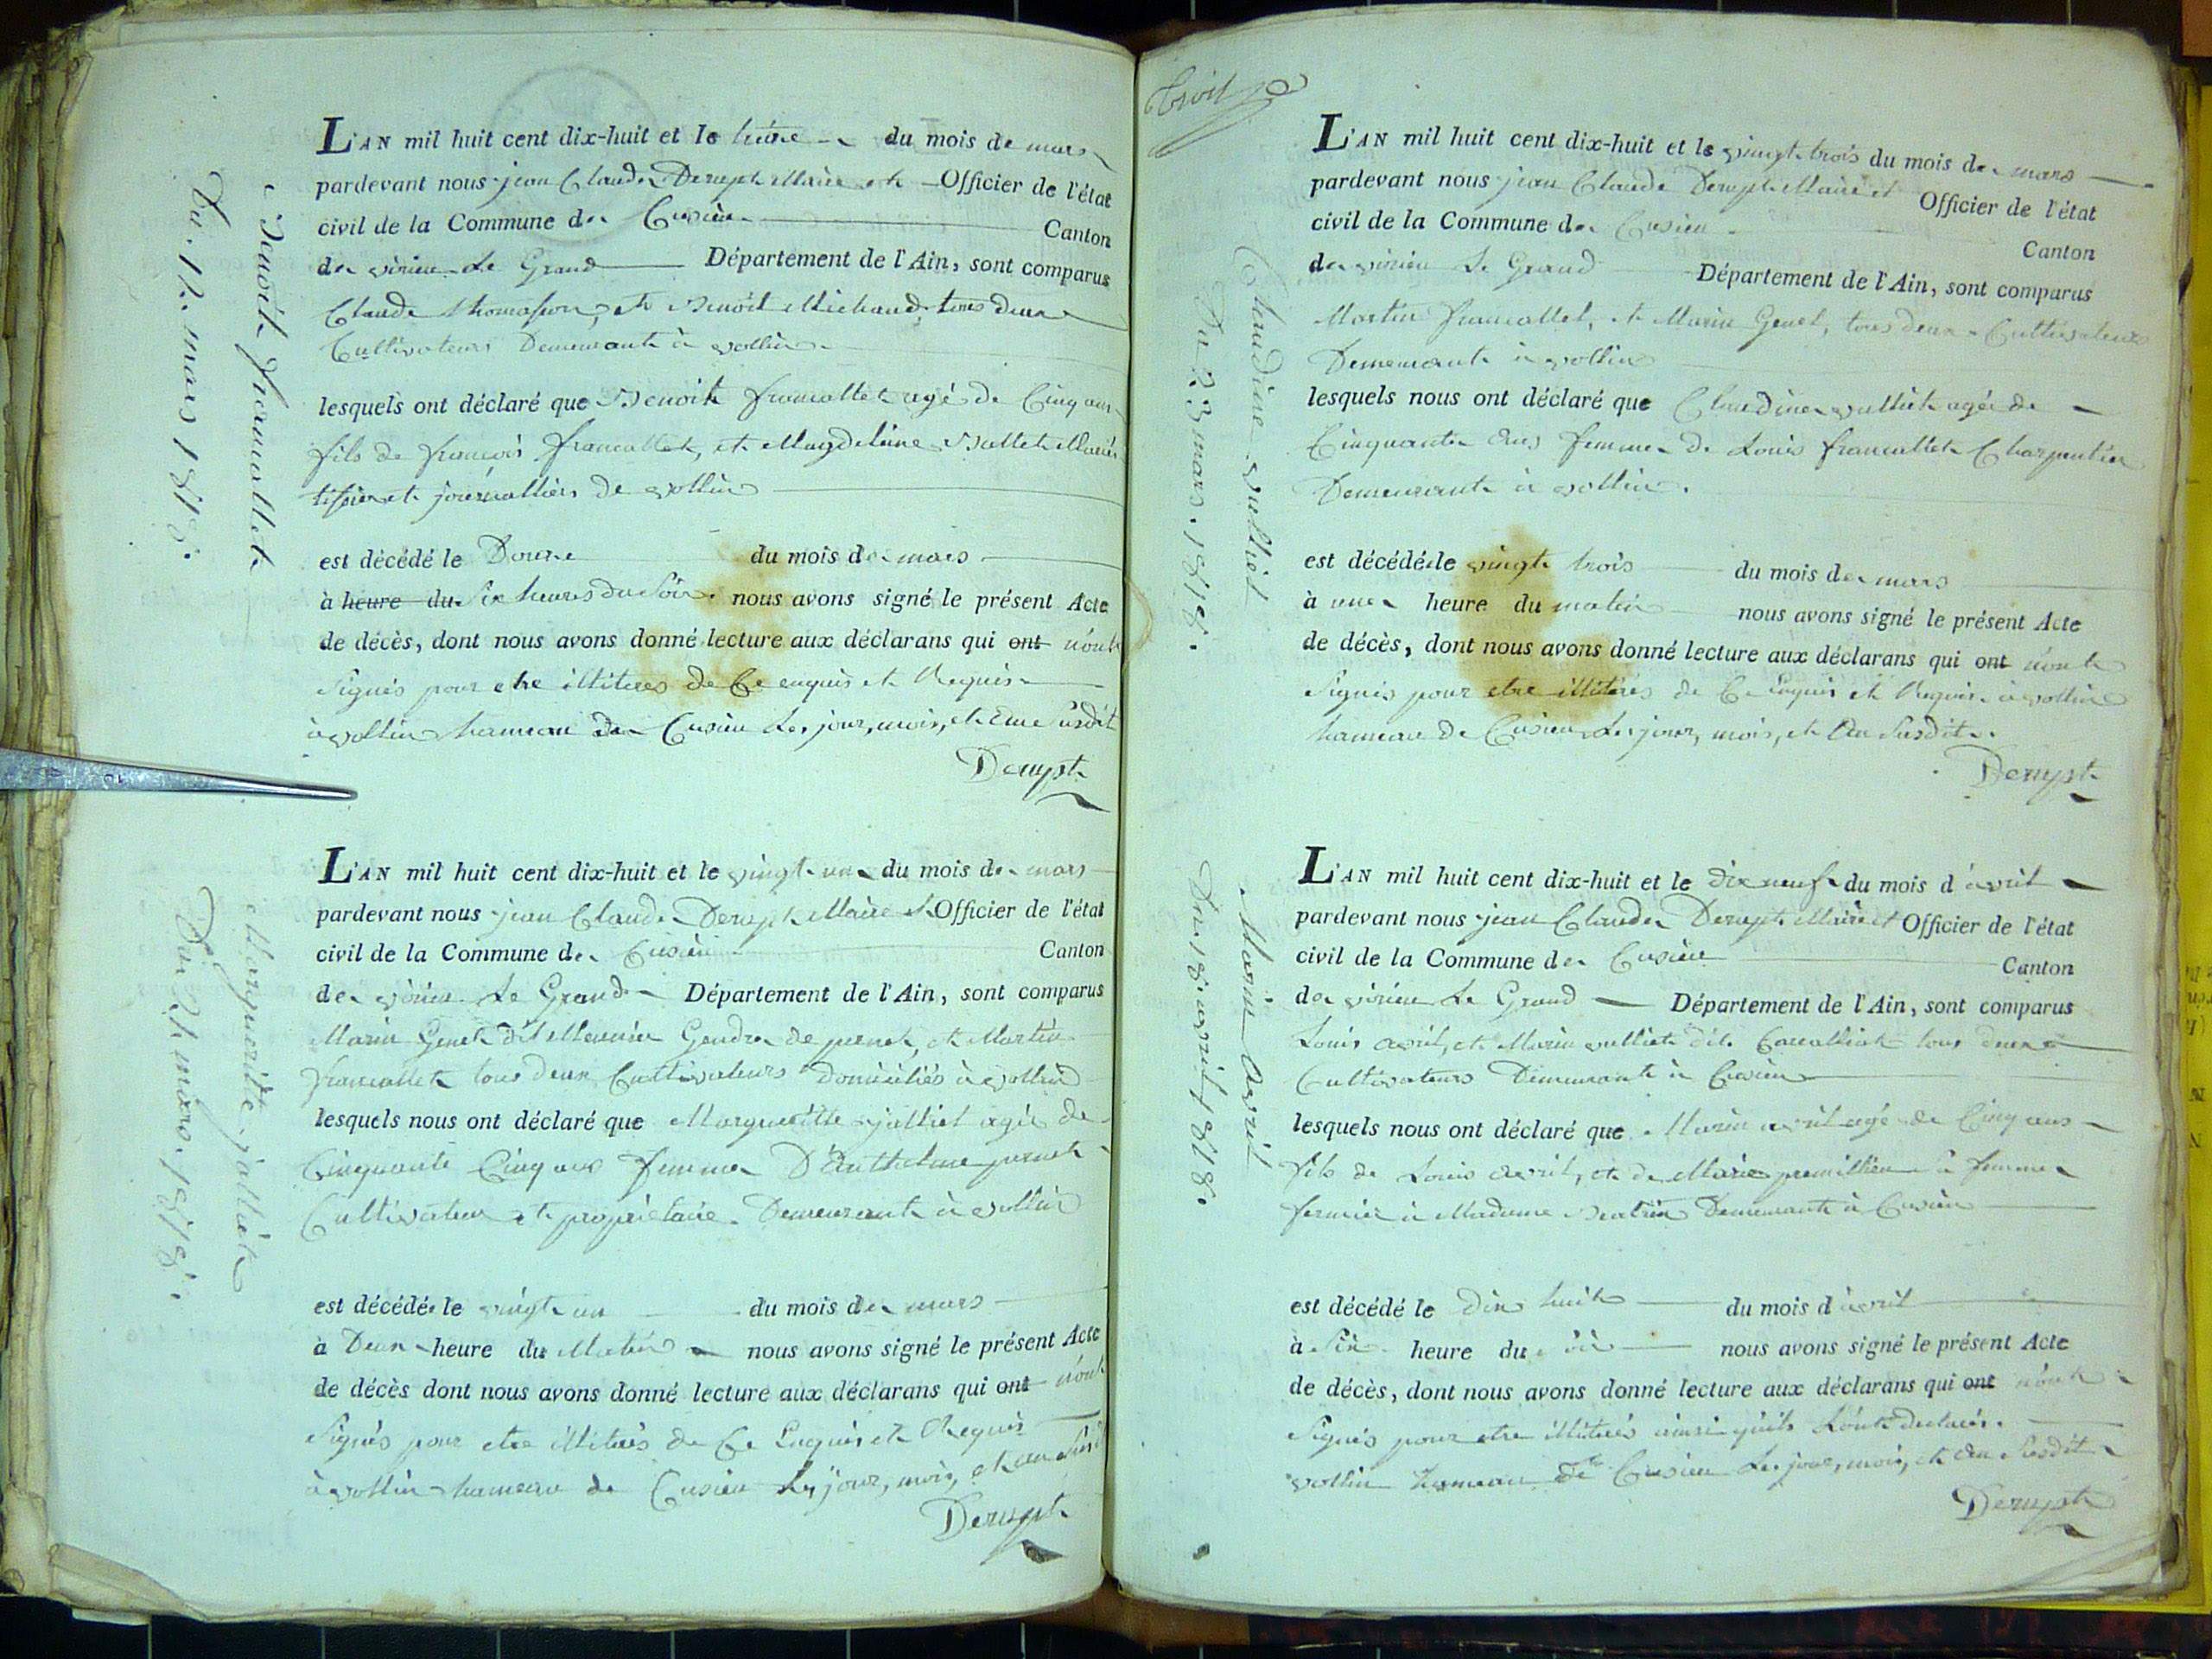 Du 12 mars 1818.
Benoit francallet
L'AN mil huit cent dix-huit et le treize du mois de mars
pardevant nous jean Claude Derupt Maire et Officier de l'état
civil de la Commune de Cusieu Canton
de virieu Le Grand Département de l'Ain, sont comparus
Claude thomasson, et Benoit Michaud tous deux
Cultivateurs Demeurants à vollien
lesquels ont déclaré que Benoit francallet agé de Cinq ans
fils de françois francallet, et Magdeleine Mariés
tissier et journalliers de vollien
est décédé le Douze du mois de mars
à heure du Six heures du Soir. nous avons signé le présent Acte
de décès, dont nous avons donné lecture aux déclarans qui ont n'ont
Signés pour etre illiteres de Ce enquis et Requis
à vollien hameau de Cusieu Les jour, mois, et an susdit
Derupt
Du 21 mars 1818.
Marguerite jalliet
L'AN mil huit cent dix-huit et le vingt un du mois de mars
pardevant nous jean Claude Derupt Maire et Officier de l'état
civil de la Commune de Cusieu Canton
de virieu Le Grand Département de l'Ain, sont comparus
Marin Genet dit Meunier Gendre de pernet, et Martin
francallet tous deux Cultivateurs Domiciliés à vollien
lesquels nous ont déclaré que Margueritte jalliet agée de
Cinquante Cinq ans femme D'Anthelme pernet
Cultivateur et propriétaire Demeurant à vollien
est décédée le vingt un du mois de mars
à Deux heure du Matin nous avons signé le présent Acte
de décès dont nous avons donné lecture aux déclarans qui ont n'ont
Signés pour etre illiterés de Ce Enquis et Requis
à vollien hameau de Cusieu Les jour, mois, et an susdit
Derupt
Du 23 mars 1818.
Claudine vulliet
L'AN mil huit cent dix-huit et le vingt trois du mois de mars
pardevant nous jean Claude Derupt Maire et Officier de l'état
civil de la Commune de Cusieu Canton
de virieu Le Grand Département de l'Ain, sont comparus
Martin francallet, et Marin Genet, tous deux Cultivateurs
Demeurants à vollien
lesquels nous ont déclaré que Claudine vulliet agée de
Cinquante ans femme de Louis francallet Charpentier
Demeurante à vollien.
est décédée le vingt trois du mois de mars
à une heure du matin nous avons signé le présent Acte
de décès, dont nous avons donné lecture aux déclarans qui ont n'ont
Signés pour etre illiterés de Ce Enquis et Requis à vollien
hameau de Cusieu Les jour, mois, et An Susdit.
Derupt
Du 18 avril 1818.
Marin Avril
L'AN mil huit cent dix-huit et le dix neuf du mois d'avril
pardevant nous jean Claude Derupt Maire et Officier de l'état
civil de la Commune de Cusieu Canton
de virieu Le Grand Département de l'Ain, sont comparus
Louis avril, et Marin vulliet dit tous deux
Cultivateurs Demeurants à Cusieu
lesquels nous ont déclaré que Marin avril agé de Cinq ans
fils de Louis avril, et de Marie premillieu sa femme
fermier à Madame Demeurante à Cusieu
est décédé le Dix huit du mois d'avril
à Six heure du soir nous avons signé le présent Acte
de décès, dont nous avons donné lecture aux déclarans qui ont n'ont
Signés pour etre illiterés ainsi qu'ils L'ont declarés.
vollien hameau de Cusieu Les jour, mois, et An Susdit
Derupt